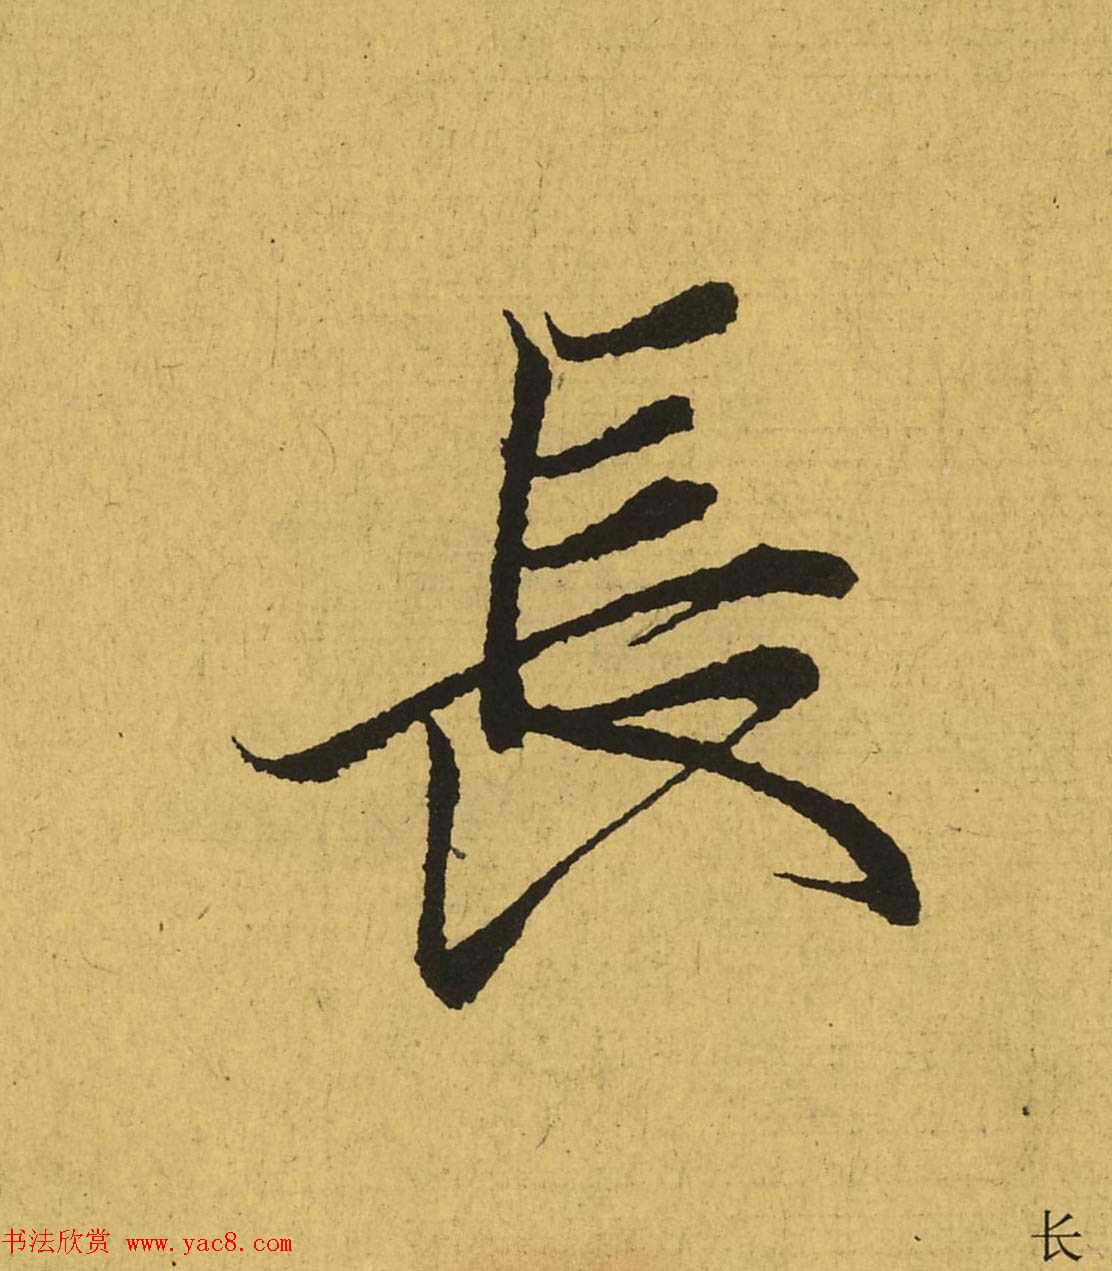 長
书法欣赏 www.yac8.com
长